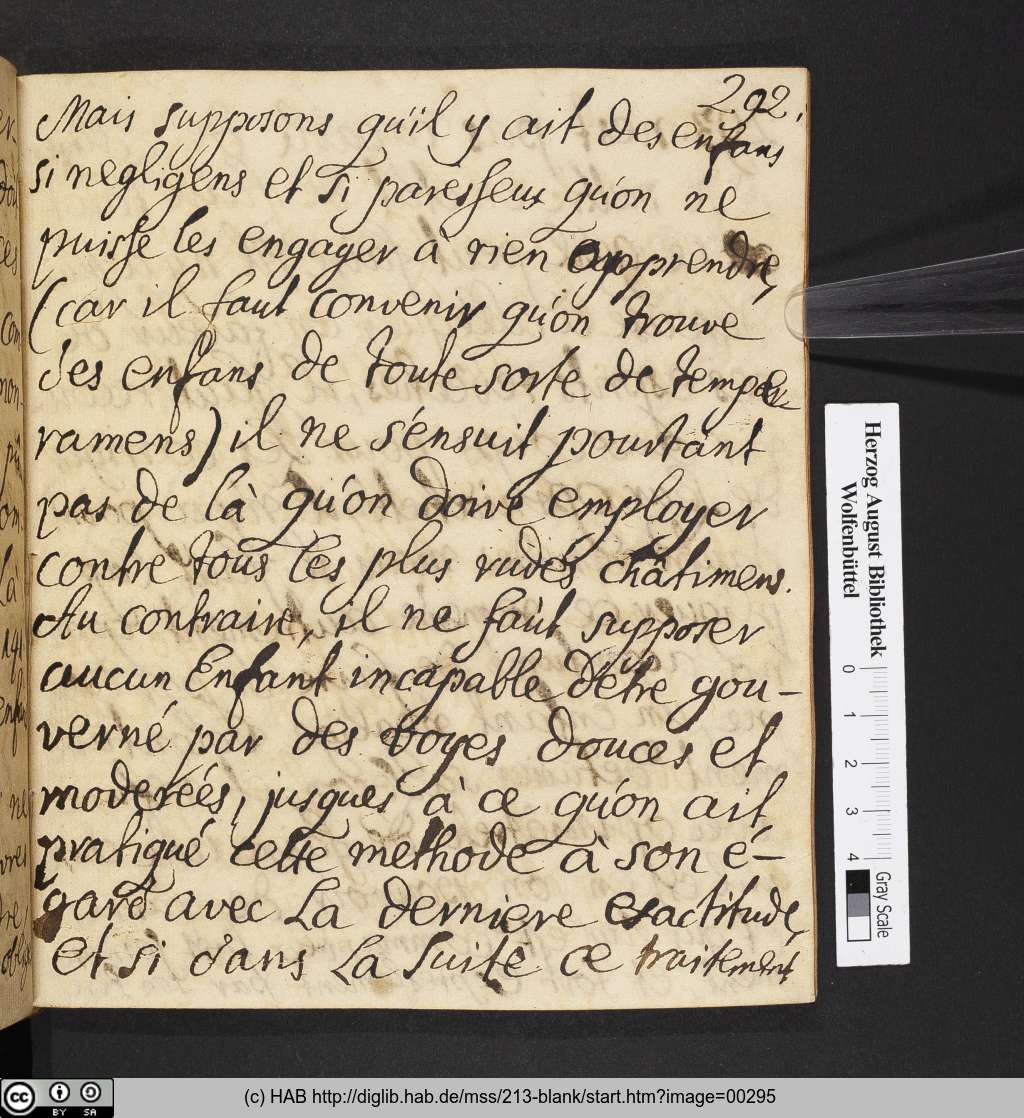 292.
Mais supposons qu'il y ait des enfans
si negligens et si paresseux qu'on ne
puisse les engager à rien apprendre,
(car il faut convenir qu'on trouve
des enfans de toute sorte de tempe
ramens) il ne s'ensuit pourtant
pas de là qu'on doive employer
contre tous les plus rudes châtimens.
Au contraire, il ne faut supposer
aucun Enfant incapable d'être gou-
verné par des voyes douces et
moderées, jusques à ce qu'on ait
pratiqué cette methode à son é-
gard avec La derniere exactitude,
et si dans La suite ce traitement
Herzog August Bibliothek
Wolfenbüttel
0 1 2 3 4
Gray Scale
cc BY SA
(c) HAB http://diglib.hab.de/mss/213-blank/start.htm?image=00295